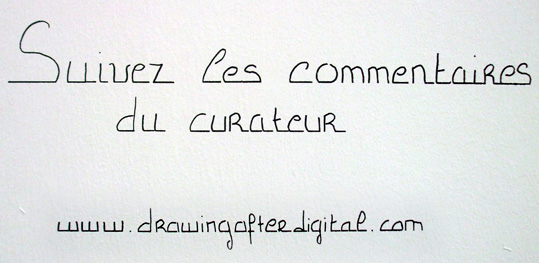 Suivez les commentaires
du curateur
www.drawingafterdigital.com